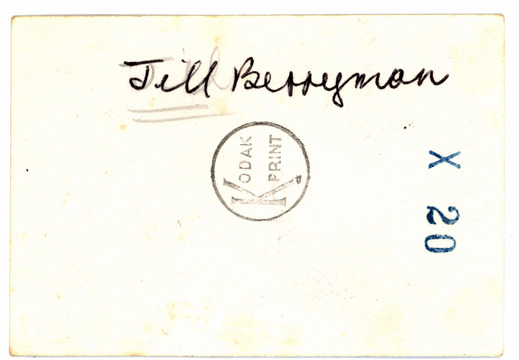 Jill Berryman
KODAK
PRINT
X 20